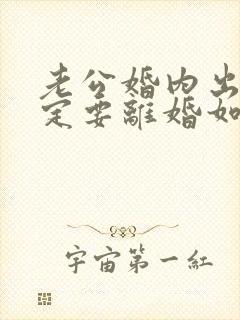 老公婚内出
定要離婚如
宇宙第一紅